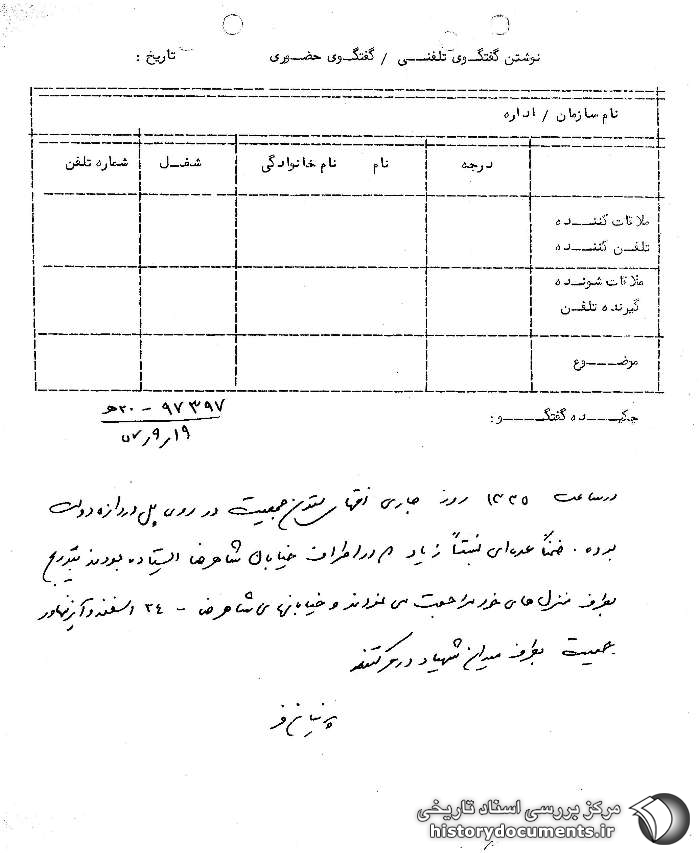 نوشتن گفتگوی تلفنی / گفتگوی حضوری تاریخ :
نام سازمان / اداره
درجه نام نام خانوادگی شغل شماره تلفن
ملاقات کننده
تلفن کننده
ملاقات شونده
گیرنده تلفن
موضوع
چکیده گفتگو :
۹۷۳۹۷ – ۲۰ه‍
۵۷/۹/۱۹
در ساعت ۱۳۳۵ روز جاری انتهای ستون جمعیت در روی پل دروازه دولت
بوده . ضمناً عده‌ای نسبتاً زیاد که در اطراف خیابان شاهرضا ایستاده بودند بتدریج
بطرف منزل های خود مراجعت می نمودند و خیابانهای شاهرضا – ۲۴ اسفند و آیزنهاور
جمعیت بطرف میدان شهیاد در حرکتند
پرنیان فر
مرکز بررسی اسناد تاریخی
historydocuments.ir